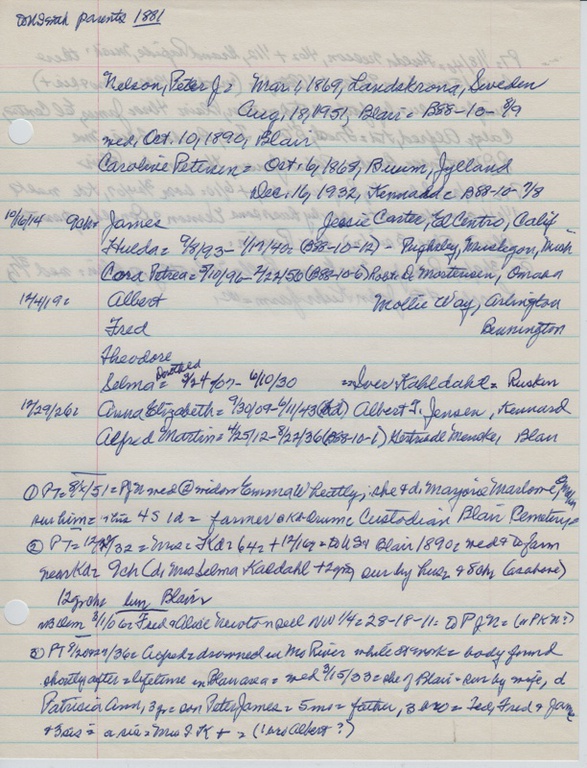 parents 1881
Nelson, Peter J = Mar. 1, 1869, Landskrona, Sweden
Aug, 18, 1951, Blair = B88-10-8/9
med, Oct. 10, 1890, Blair
Caroline Petersen = Oct. 6, 1868, Jylland
Dec. 16, 1932, Kennard = B88-10-7/8
10/16/14 9chr James Jessie Carter, El Centro, Calif
Hulda = 9/8/93- 1/17/40 = (B88-10-12) = Pughsley, Muskegon, Mich
Cora Petrea = 5/10/96-2/22/50 (B88-10-6) D. Mortensen, Omaha
12/4/19 = Albert Mollie Way, Arlington
Fred Bennington
Theodore
Selma = 3/24/07- 6/10/30 = Iver Kahldahl = Ruskin
12/29/26 = Anna Elizabeth = 9/30/09-6/11/43 Albert T. Jensen, Kennard
Alfred Martin = 4/25/12-8/22/36 (B88-10-1) Gertrude Blair
① PT = = PJN med @ widow Emma Wheatly; she + d, Marjorie Marlowe,
sur him = 45 1d = farmer Orum = Custodian Blair Cemetery
② PT = /32 = Mrs = Kd = 64 = + 12/16 = Blair 1890 = med + to farm
near Kd = 9ch (d, Mrs Selma Kaldahl + sur by husb + 8ch (as above)
12 grch bur Blair
3/1/06 = Fred + Alice Newton sell NW 1/4 = 28-18-11 = to PJN = (or PKN?)
/36 = Alfred = drowned in Mo River while at work = body found
shortly after = lifetime in Blair area = med 3/15/33 = she of Blair = sur by wife, d
Patricia Ann, 3 yr = son Peter James = 5 mo = father, 3 bro = Ted, Fred + James
+ 3 sis = a sis = Mrs I. K + = (bro Albert?)